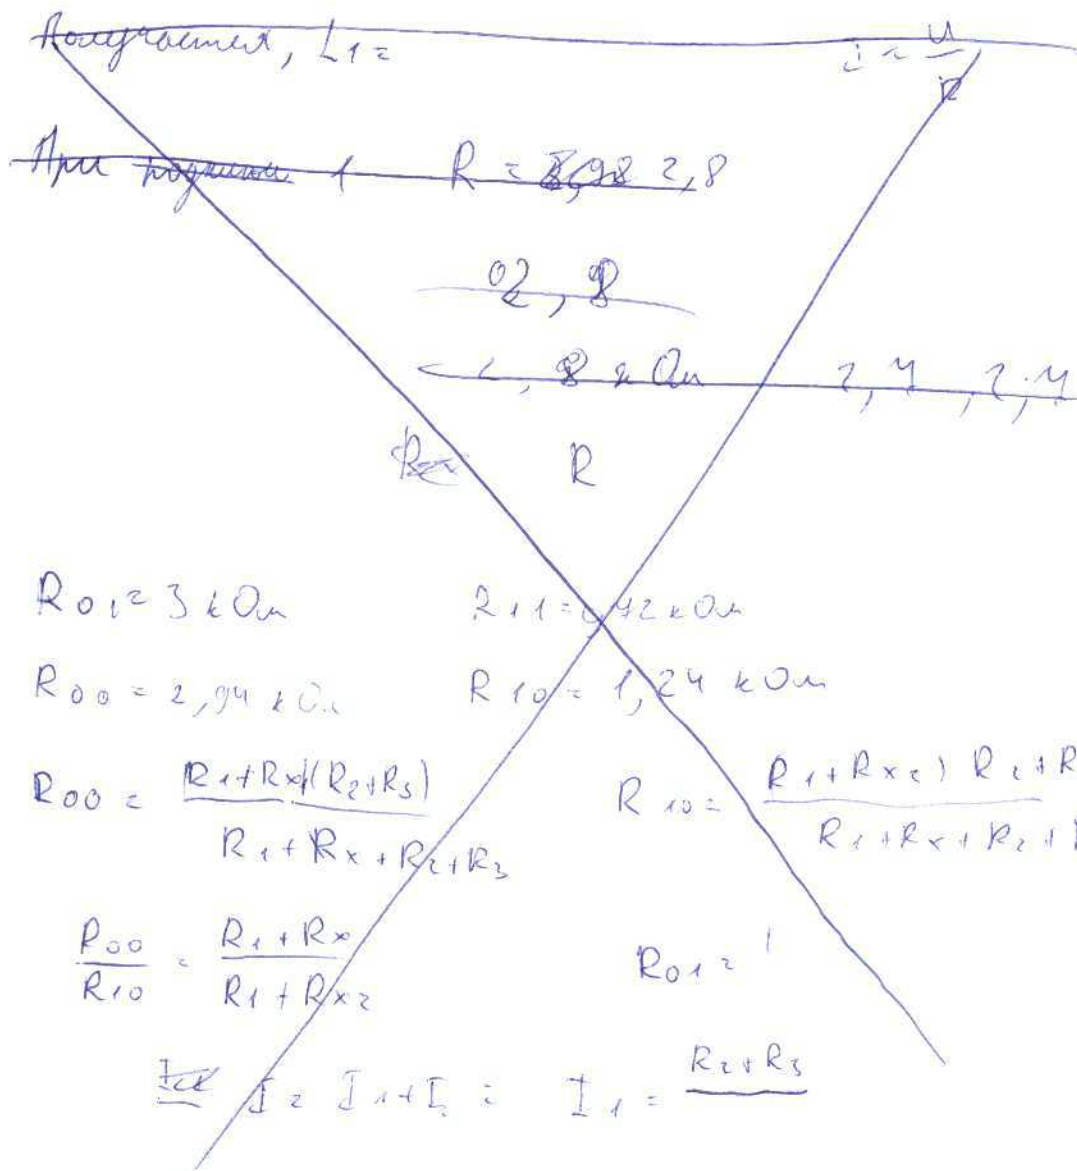 Получается, L1 = i = U/R
При 1 R = 2,8
02, 8
, 8 кОм 2,4 , 2,4
R
R01 = 3 кОм R11 = 0,72 кОм
R00 = 2,94 кОм R10 = 1,24 кОм
R00 = (R1+Rx)(R2+R3) / R1+Rx+R2+R3 R10 = R1+Rx2) R2+R / R1+Rx+R2+
R00/R10 = R1+Rx / R1+Rx2 R01 =
I = I1+I2 = I1 = R2+R3